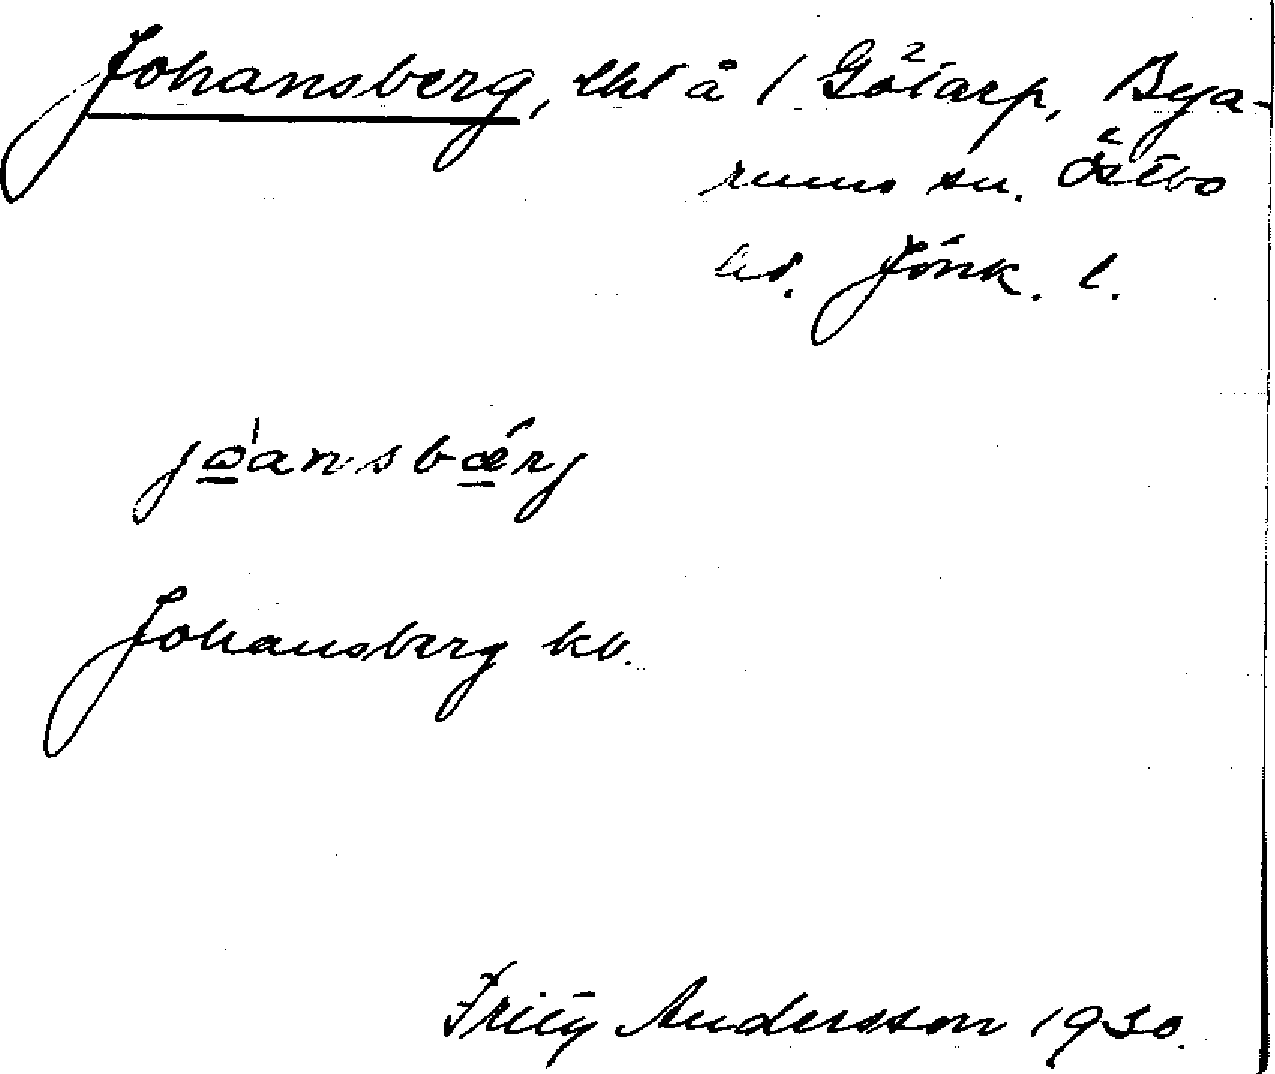 Johansberg, lht å 1 Götarp, Bya-
rums sn. Östbo
hd. Jönk. l.
jo̲ansbæ̲rj
Johansberg kb.
Fritz Andersson 1930.